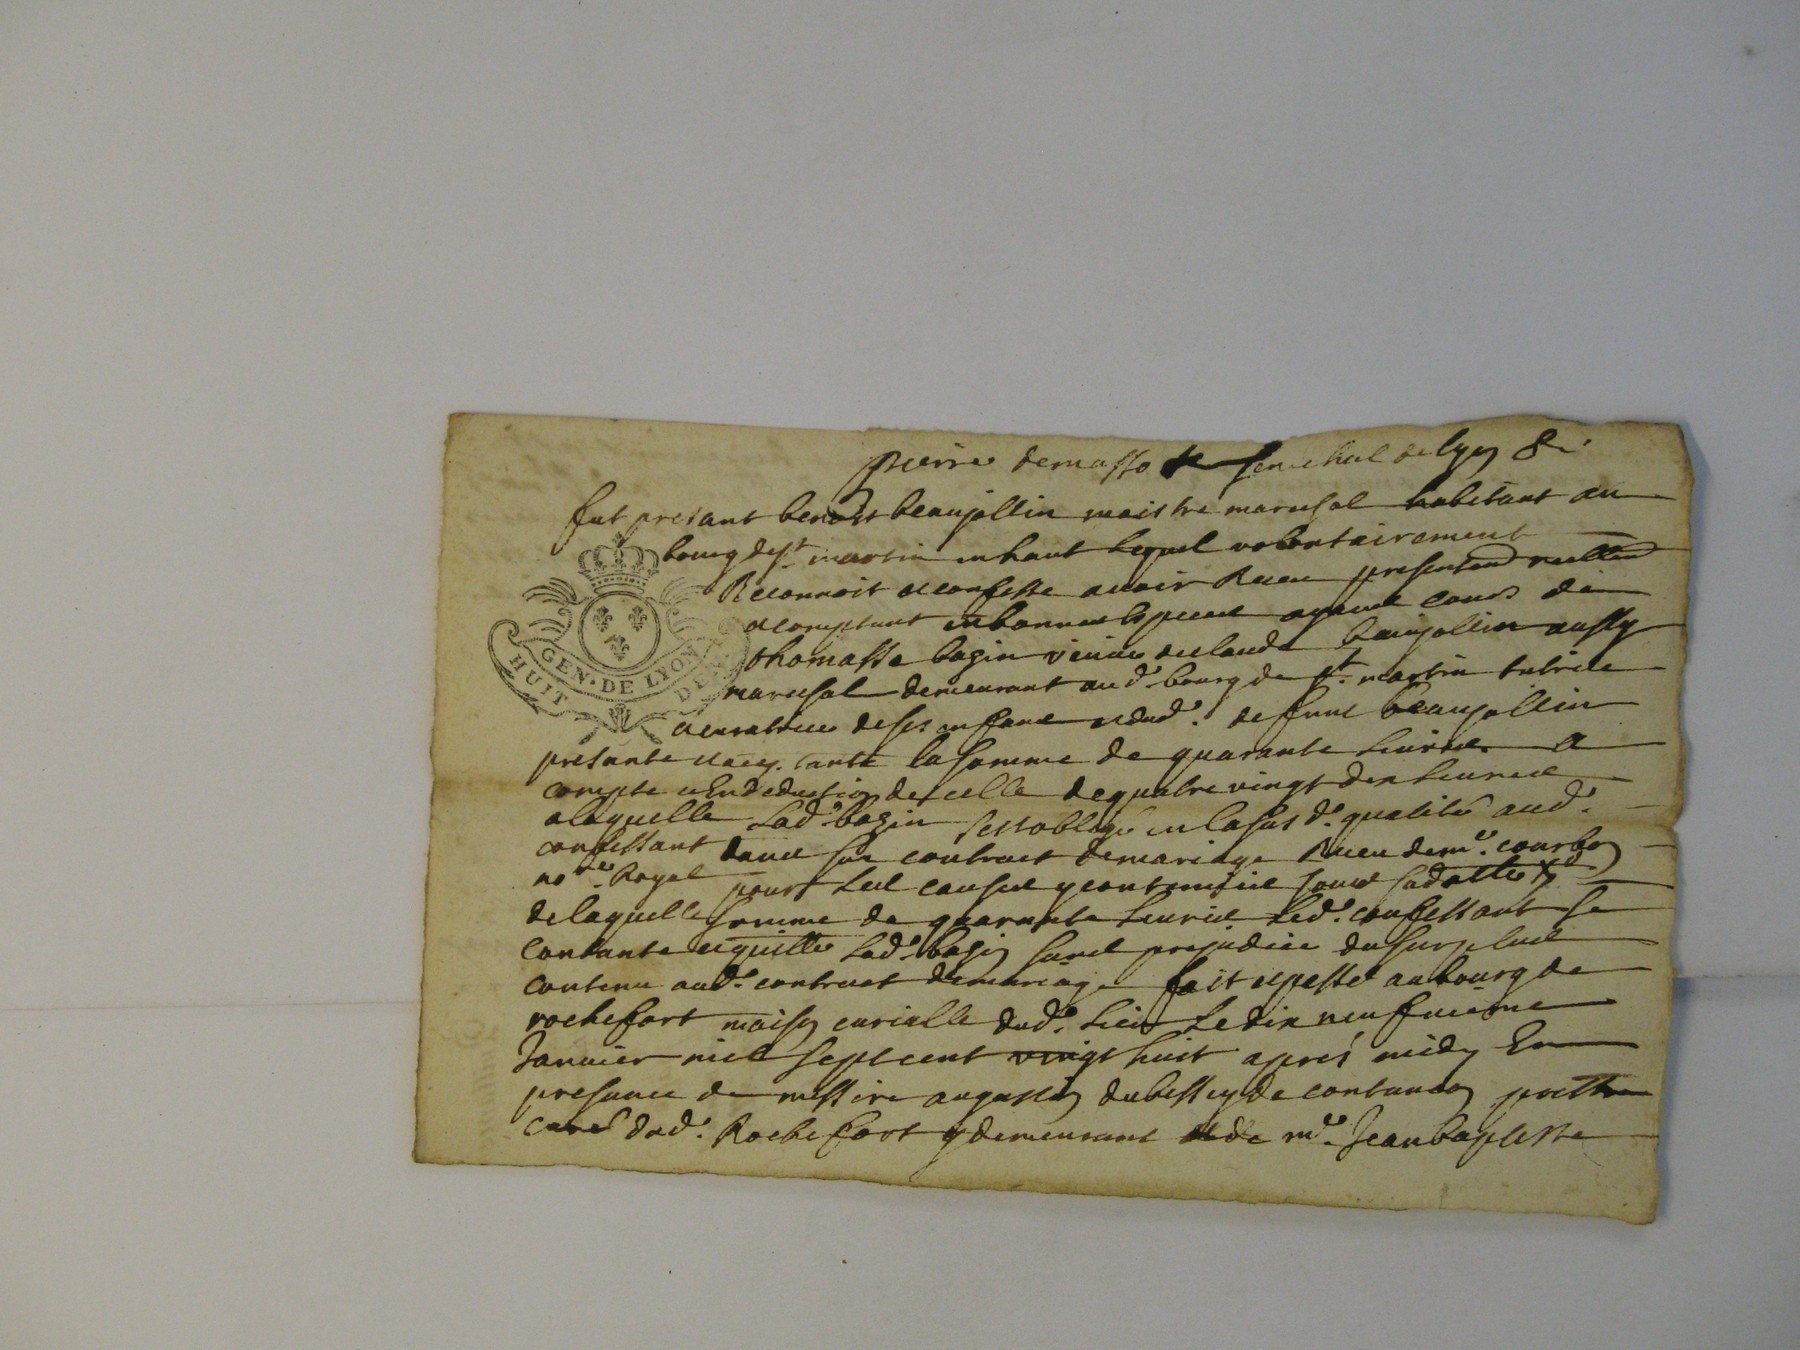 pierre demasso senechal de lyon &c
fut presant benoist beaujollin maistre mareschal habitant au
bourg de st. martin en haut lequel volontairement
Reconnoit et confesse avoir Receu presentement reellement
et comptant en bonnes especes ayant cours de
thomasse bazin veuve de claude beaujollin aussy
mareschal demeurant aud. bourg de st. martin tutrice
et curatrice de ses enfans et dud. defunt beaujollin
presante et acceptante la somme de quarante Livres a
compte et En deduction de celle de quatre vingt dix Livres
a laquelle Lad. bazin sest obligé en la susd. qualité aud.
confessant dans son contract de mariage Receu de me. courbon
nore. Royal pour Les causes y contenues sous sa datte
de laquelle somme de quarante Livres Led. confessant se
contante et quitte Lad. bazin sans prejudice du surplus
contenu aud. contract de mariage fait et passé au bourg de
rochefort maison curialle dud. Lieu Le dix neufvieme
Janvier mil sept cent vingt huit apres midy En
presance de messire augustin dubessey de contanson prestre
curé dud. Rochefort y demeurant et de me. Jean baptiste
GEN. DE LYON
HUIT DEN.